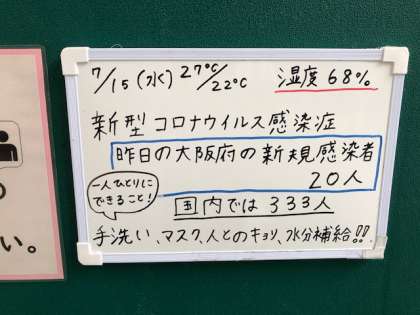 7/15(水) 27℃/22℃ 湿度 68%
新型コロナウイルス感染症
昨日の大阪府の新規感染者
20人
一人ひとりに
できること!
国内では 333人
手洗い、マスク、人とのキョリ、水分補給!!
の
い。